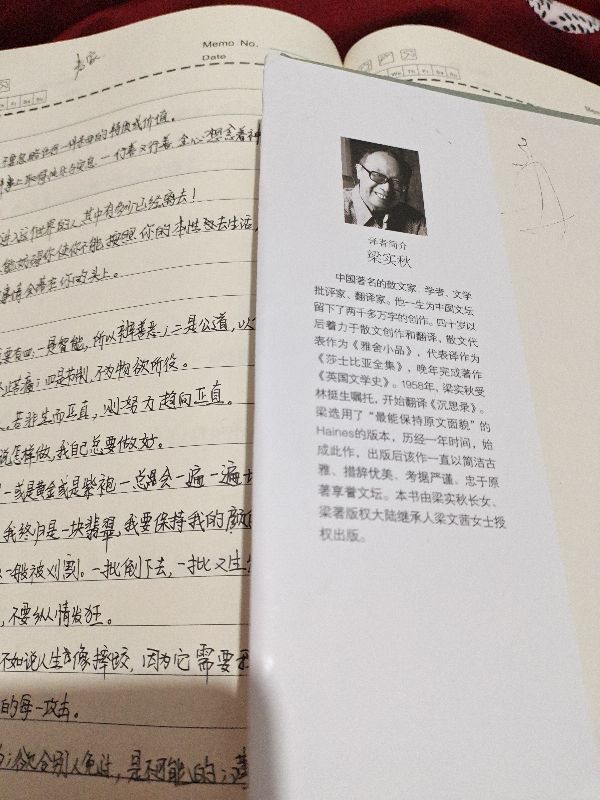 Memo No.
Date
进入这世界的人,其中有多少已经离去!
能妨碍你使你不能按照你的本性迳去生活,
事情会落在你的头上。
是智能,所以辨善恶;二是公道,以
四是节制,不为物欲所役。
若非生而正直,则努力趋向正直。
说怎样做,我自己总要做好。
一或是黄金或是紫袍一总是会一遍一遍
我终归是一块翡翠,我要保持我的颜色
一般被刈割。一批倒下去,一批又生
,不要纵情发狂。
不如说人生像摔跤,因为它需要
的每一攻击。
是不可能的;
译者简介
梁实秋
中国著名的散文家、学者、文学
批评家、翻译家。他一生为中国文坛
留下了两千多万字的创作。四十岁以
后着力于散文创作和翻译,散文代
表作为《雅舍小品》,代表译作为
《莎士比亚全集》,晚年完成著作
《英国文学史》。1958年,梁实秋受
林挺生嘱托,开始翻译《沉思录》。
梁选用了“最能保持原文面貌”的
Haines的版本,历经一年时间,始
成此作,出版后该作一直以简洁古
雅、措辞优美、考据严谨、忠于原
著享誉文坛。本书由梁实秋长女、
梁著版权大陆继承人梁文茜女士授
权出版。